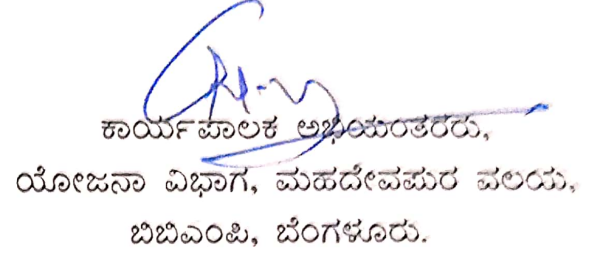 ಕಾರ್ಯಪಾಲಕ ಅಭಿಯಂತರರು,
ಯೋಜನಾ ವಿಭಾಗ, ಮಹದೇವಪುರ ವಲಯ,
ಬಿಬಿಎಂಪಿ, ಬೆಂಗಳೂರು.